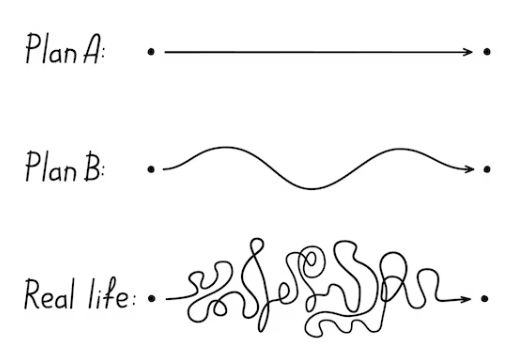 Plan A:
Plan B:
Real life: